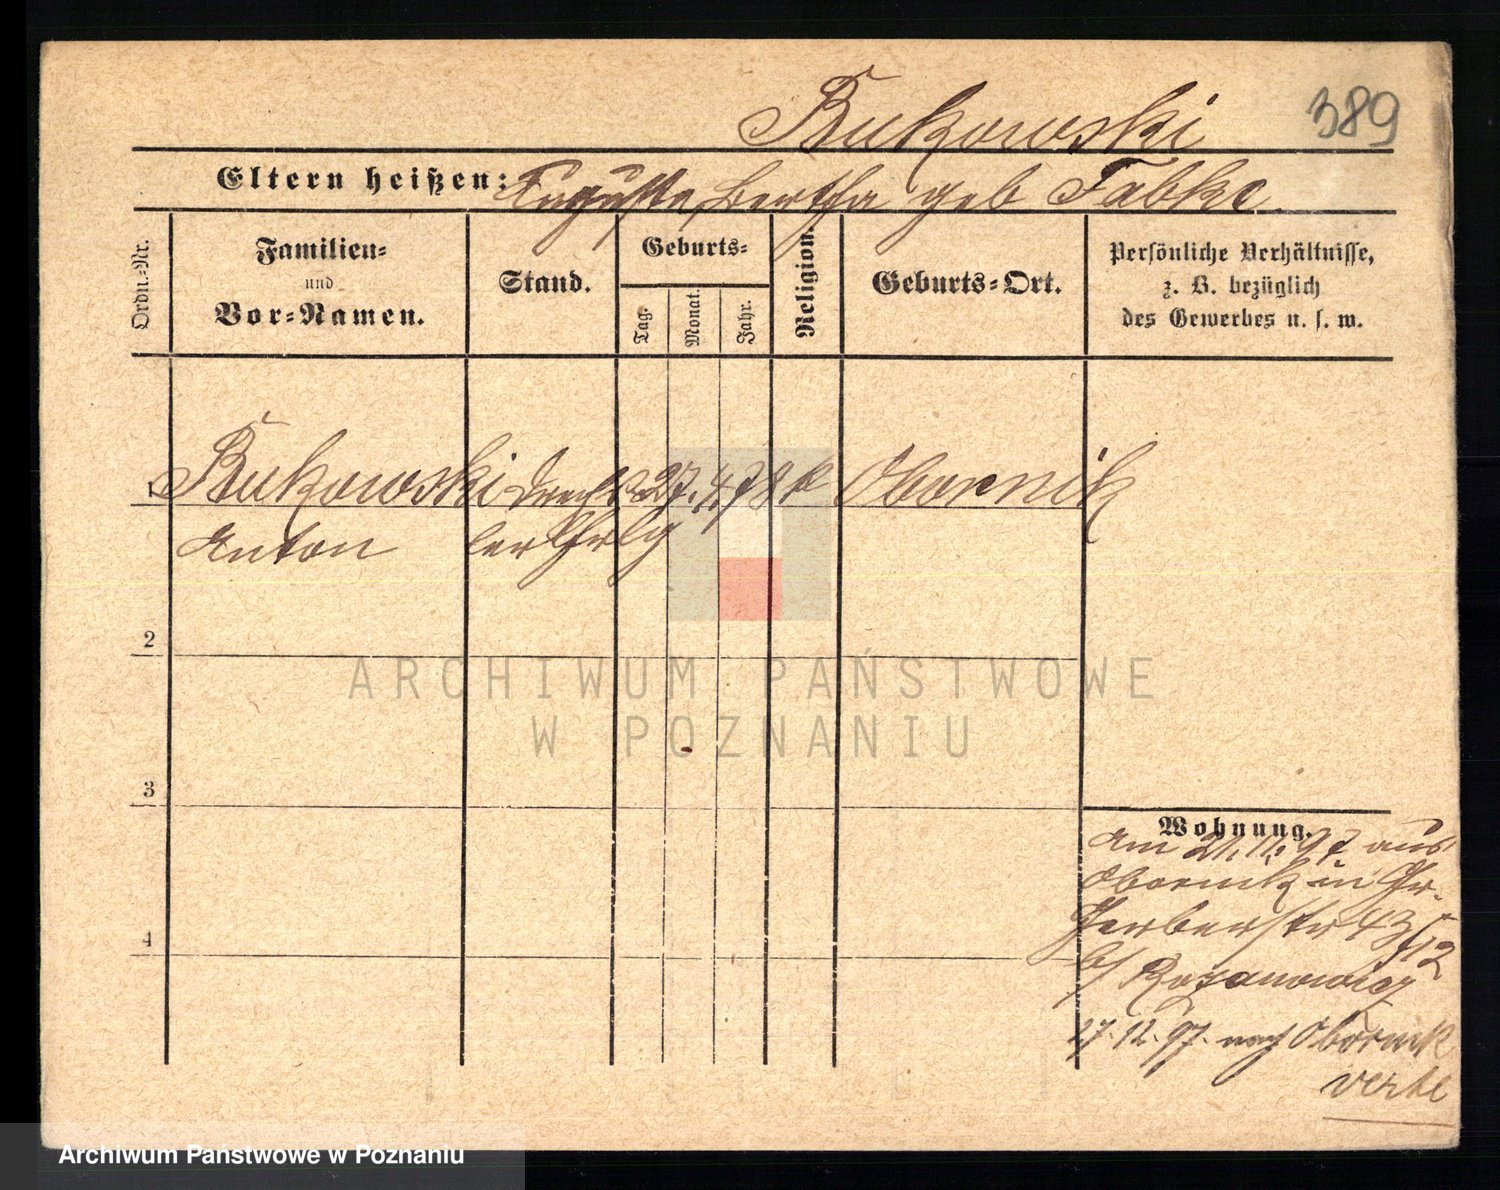 Bukowski 389
Eltern heißen: Auguste, Bertha geb Fabke
Ordn.-Nr.
Familien-
und
Vor-Namen.
Stand.
Geburts-
Tag.
Monat.
Jahr.
Religion.
Geburts-Ort.
Persönliche Verhältnisse,
z. B. bezüglich
des Gewerbes u. s. w.
1 Bukowski 27. 4. 78 k Obornik
Anton
2
3
4
Wohnung.
Am 21. 11. 97. aus
Obornik in Gr.
Gerberstr 43
b/ Rozanowicz
27. 12. 97. nach Obornik
verte
ARCHIWUM PAŃSTWOWE
W POZNANIU
Archiwum Państwowe w Poznaniu